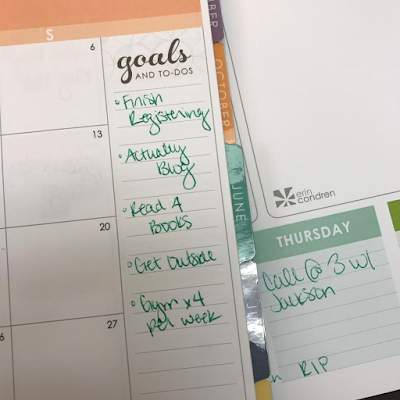 S
6
13
20
27
6
goals
AND TO-DOS
° Finish
Registering
° Actually
Blog
° Read 4
Books
° Get Outside
° Gym x4
per week
OCTOBER
JUNE
erin
condren
THURSDAY
Call @ 3 w/
Jackson
RIP